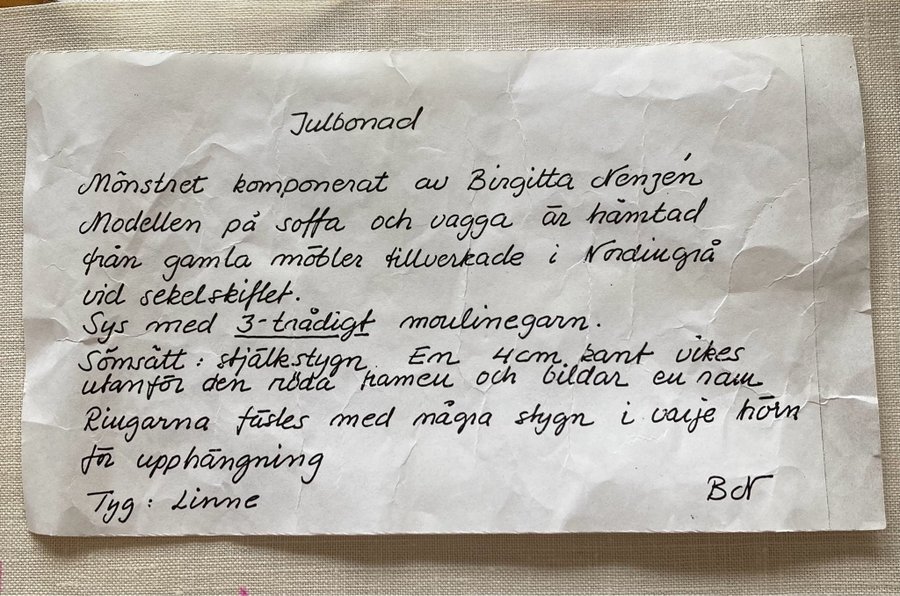 Julbonad
Mönstret komponerat av Birgitta Nenzén
Modellen på soffa och vagga är hämtad
från gamla möbler tillverkade i Nordingrå
vid sekelskiftet.
Sys med 3-trådigt moulinegarn.
Sömsätt: stjälkstygn. En 4cm kant vikes
utanför den röda ramen och bildar en ram
Ringarna fästes med några stygn i varje hörn
för upphängning
Tyg: Linne
BN